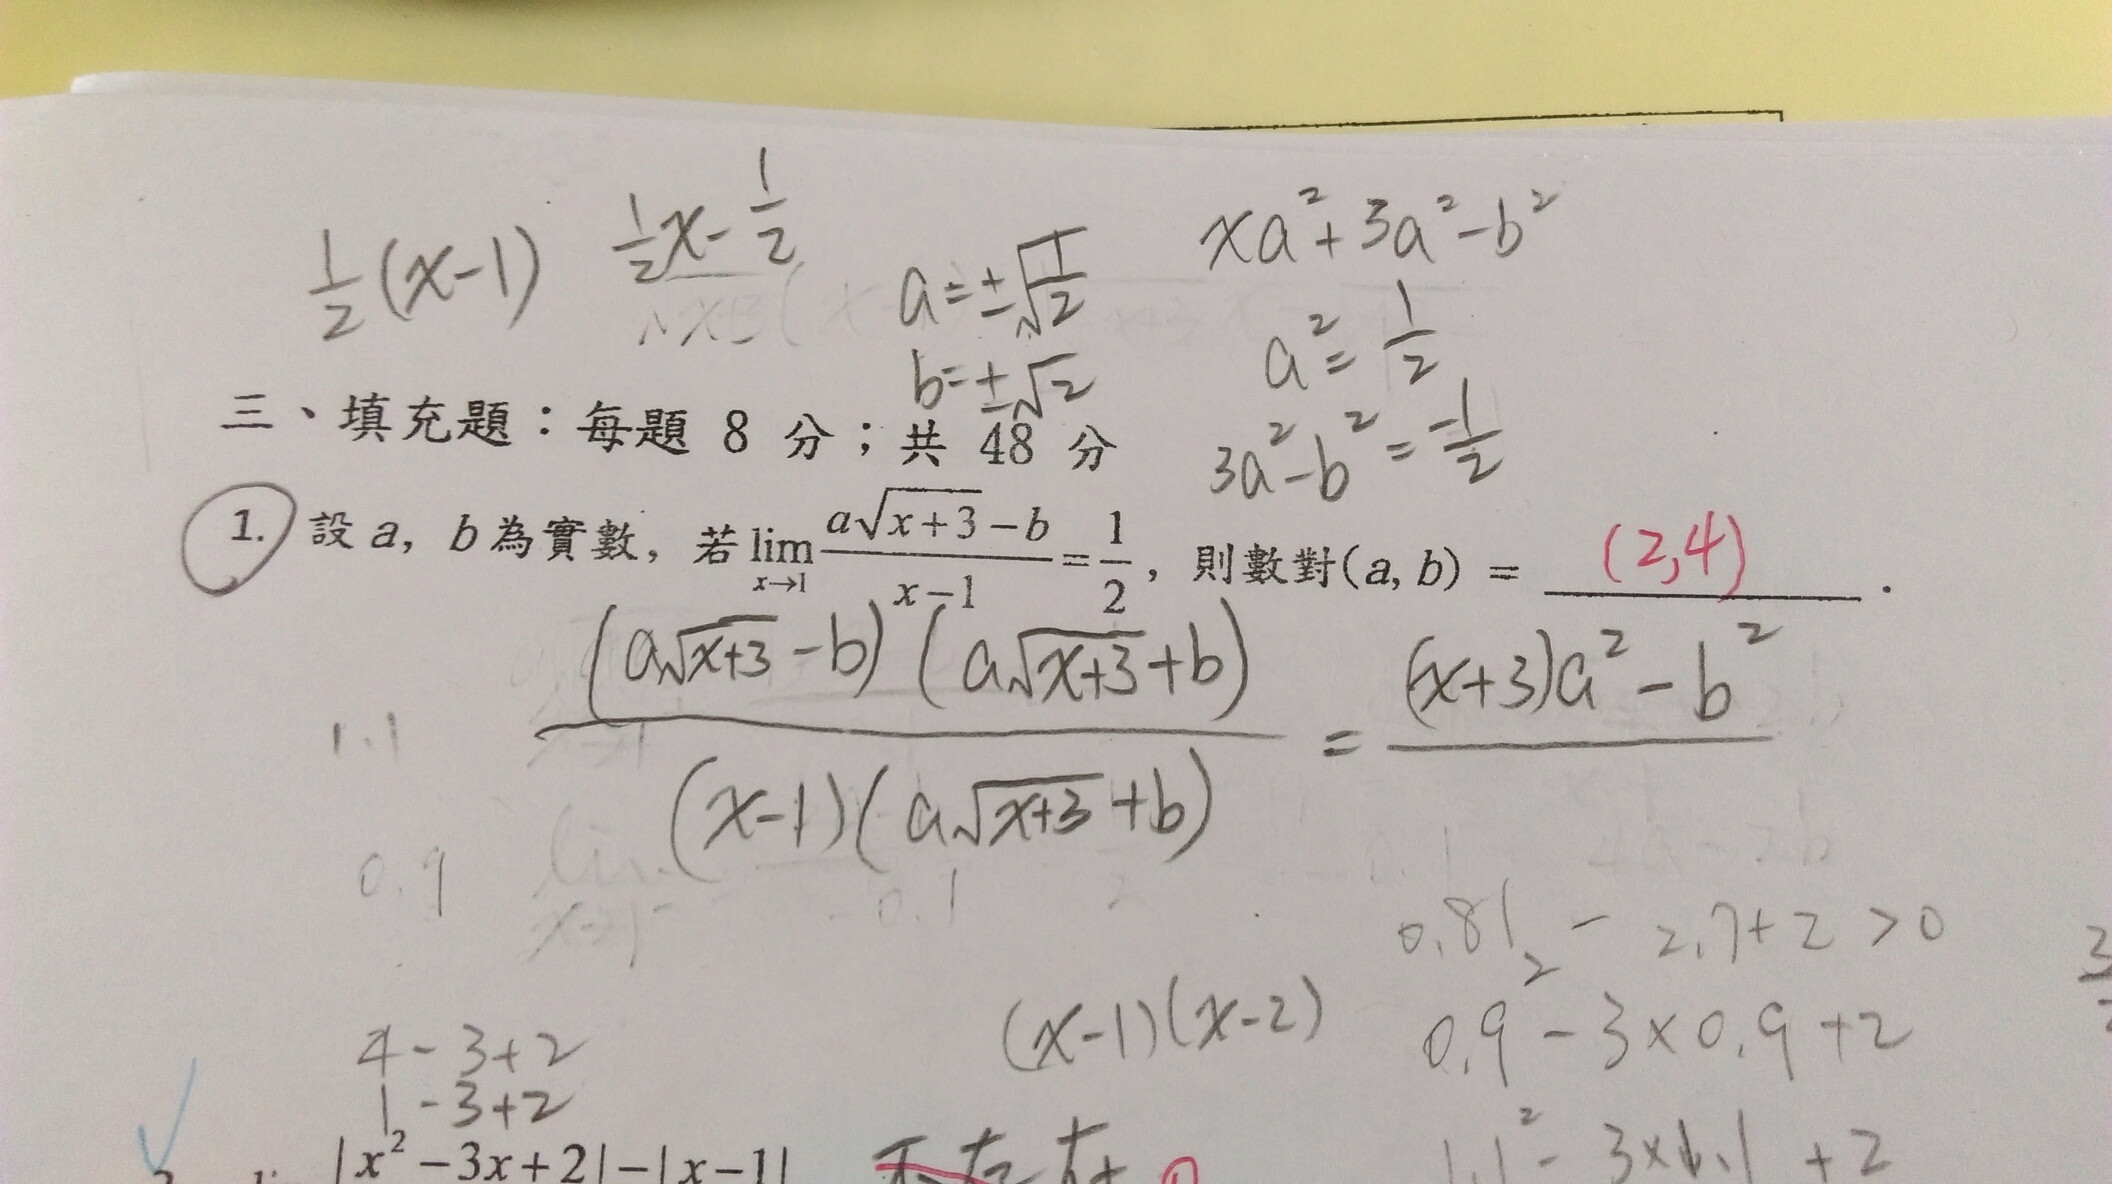 ½(x-1)
½x-½
a=±√½
b=±√2
xa²+3a²-b²
a²=½
3a²-b²=-½
三、填充題：每題 8 分；共 48 分
1. 設 a, b 為實數, 若 lim x→1 (a√(x+3) - b)/(x-1) = 1/2, 則數對(a, b) = (2,4).
(a√(x+3) -b)(a√(x+3)+b)
(x-1)(a√(x+3)+b)
= (x+3)a²-b²
1.1
0.9
-0.1
0.81 - 2.7+2>0
(x-1)(x-2)
0.9² - 3×0.9+2
4-3+2
1-3+2
1.1² - 3×1.1+2
|x²-3x+2|-|x-1|